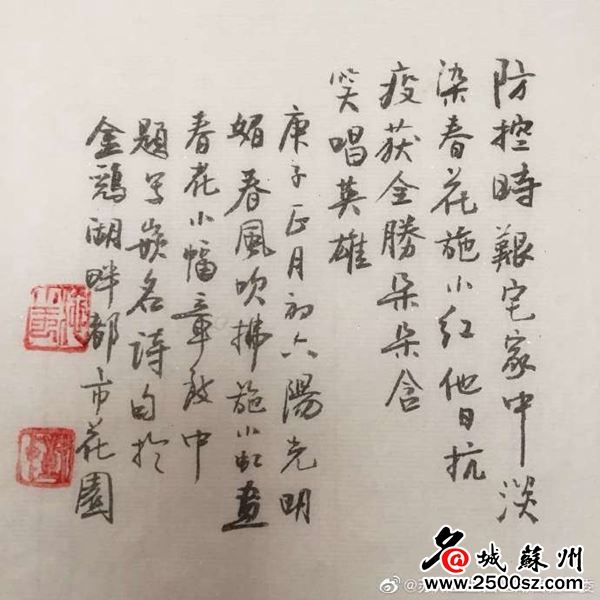 防控時艱宅家中淡
染春花施小紅他日抗
疫获全勝朵朵含
笑唱英雄
庚子正月初六陽光明
媚春風吹拂施小虹畫
春花小幅章致中
題写嵌名詩句於
金鷄湖畔都市花園
名城蘇州
www.2500sz.com